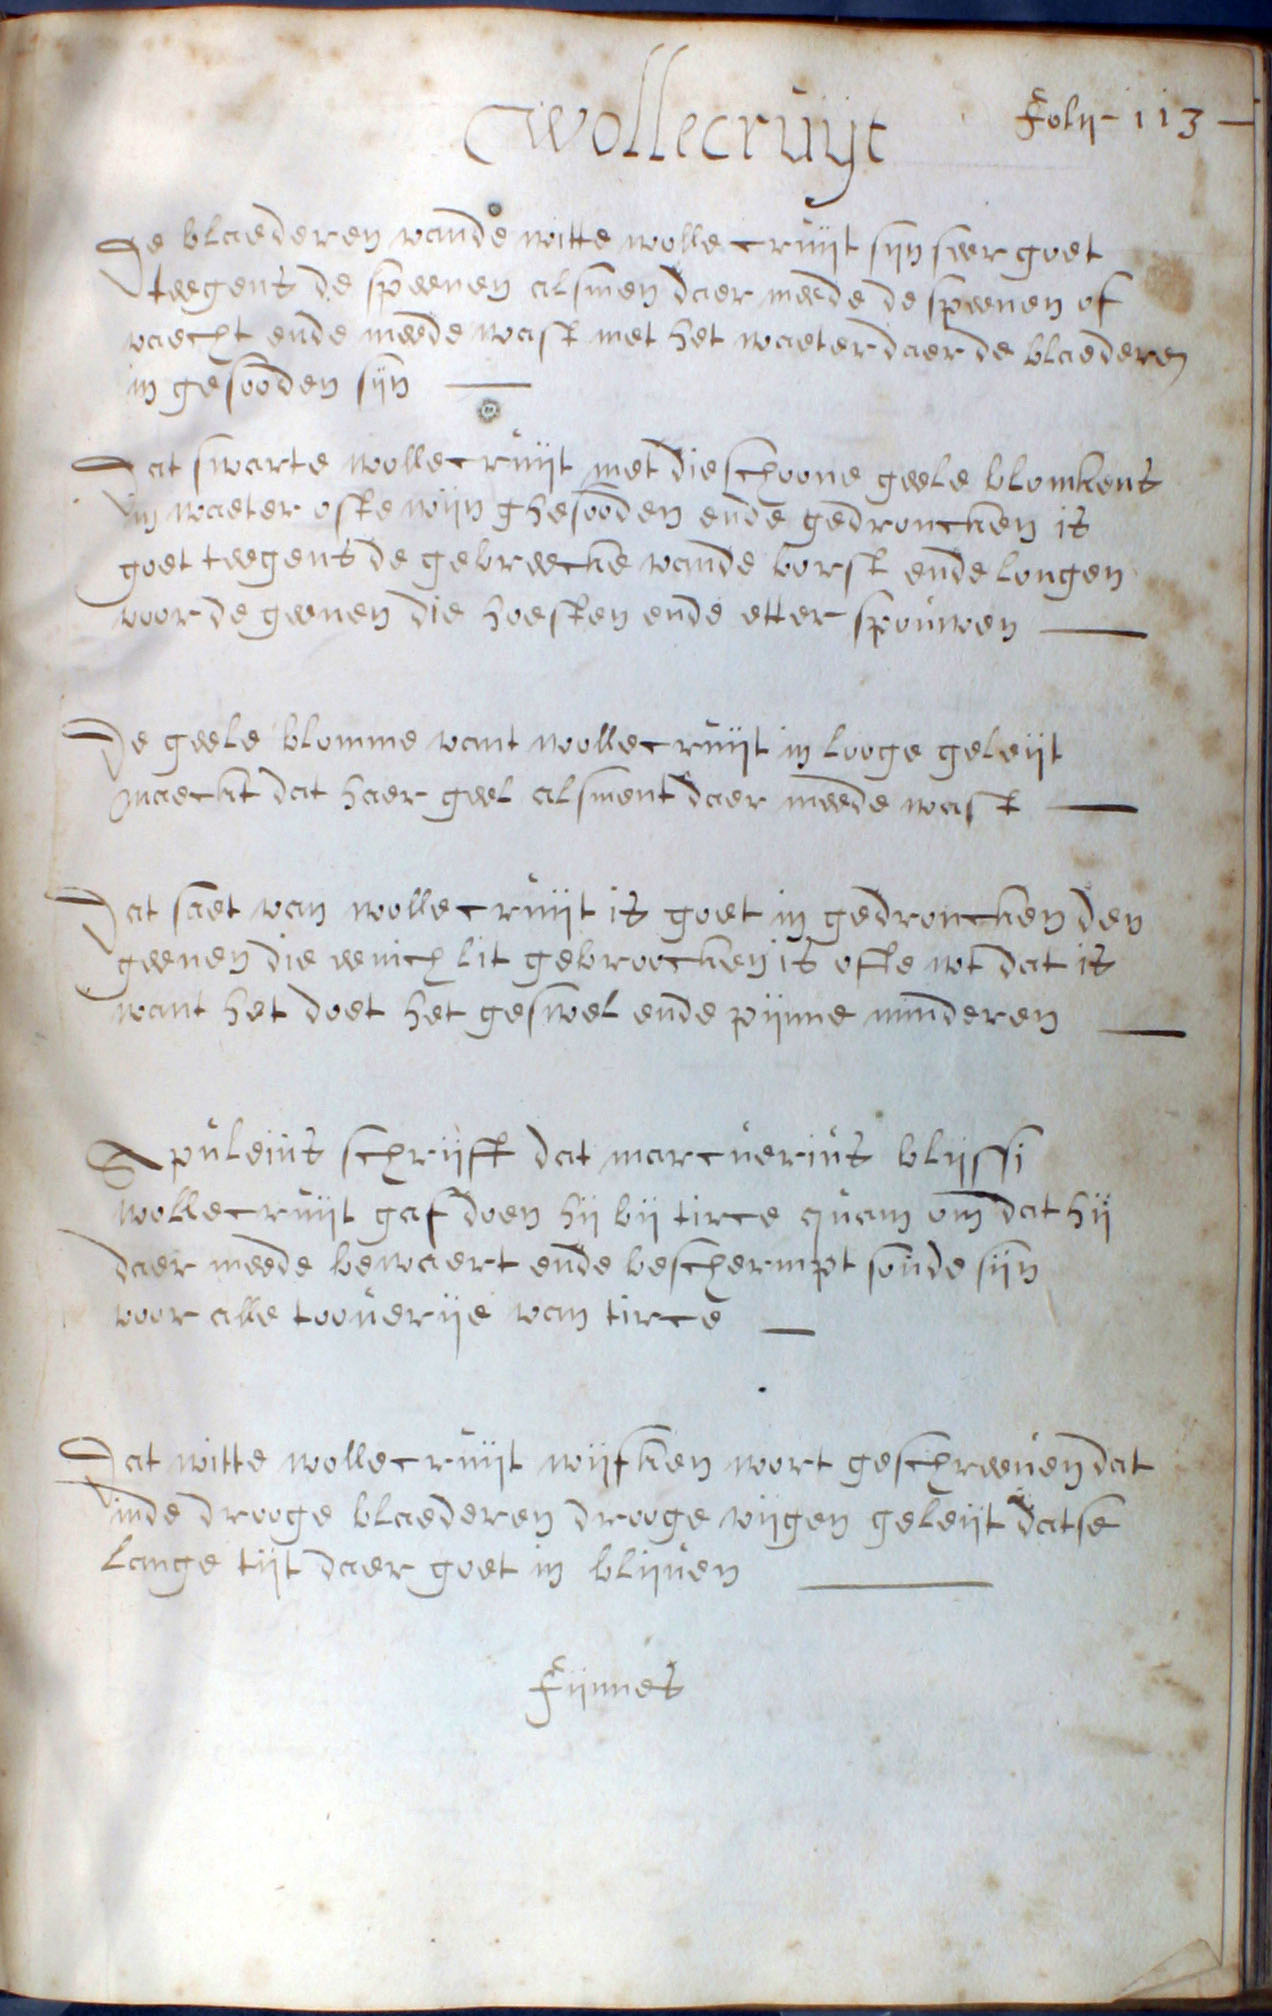 Wollecruijt
Folij 113
De blaederen vande witte wollecruijt sijn seer goet
teegens de speenen alsmen daer meede de speenen of
vaecht ende meede wast met het waeter daer de blaederen
in gesooden sijn
Dat swarte wollecruijt met die schoone geele blomkens
in waeter ofte wijn ghesooden ende gedroncken is
goet teegens de gebreecke vande borst ende longen
voor de geenen die hoesten ende etter spouwen
De geele blomme vant wollecruijt in looge geleijt
maeckt dat haer geel alsment daer meede wast
Dat saet van wollecruijt is goet in gedroncken den
geenen die eenich lit gebroocken is offe wt dat is
want het doet het geswel ende pijnne minderen
Apuleius schrijft dat marcuerius vlijssi
wollecruijt gaf doen hij bij tirce quam om dat hij
daer meede bewaert ende beschermpt soude sijn
voor alle toouerije van tirce
Dat witte wollecruijt wijfken wort geschreeuen dat
inde drooge blaederen drooge vijgen geleijt datse
lange tijt daer goet in blijuen
Fijnnes